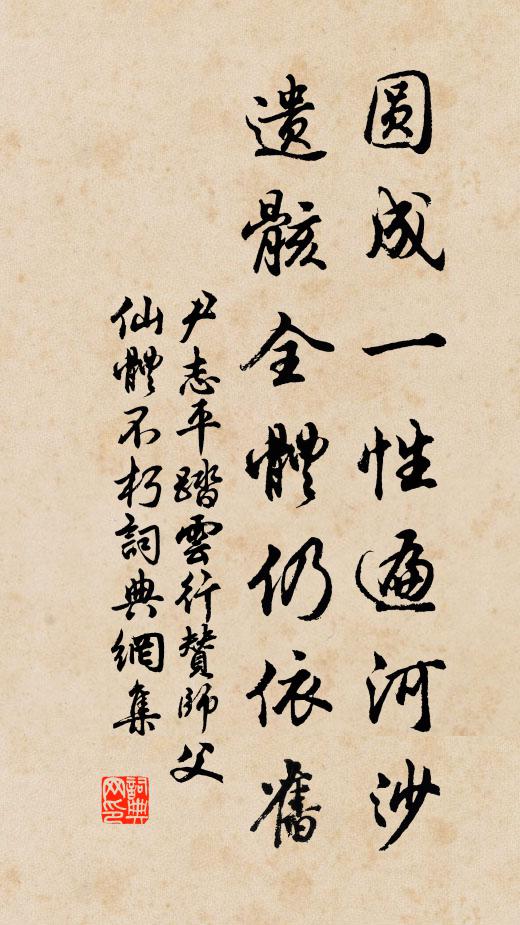 圆成一性遍河沙
遗骸全體仍依舊
尹志平踏雲行赞師父
仙體不朽詞典網集
詞典网印